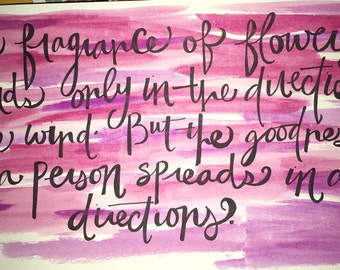 fragrance of flower
ds only in the directio
e wind. But the goodnes
a person spreads in a
directions.